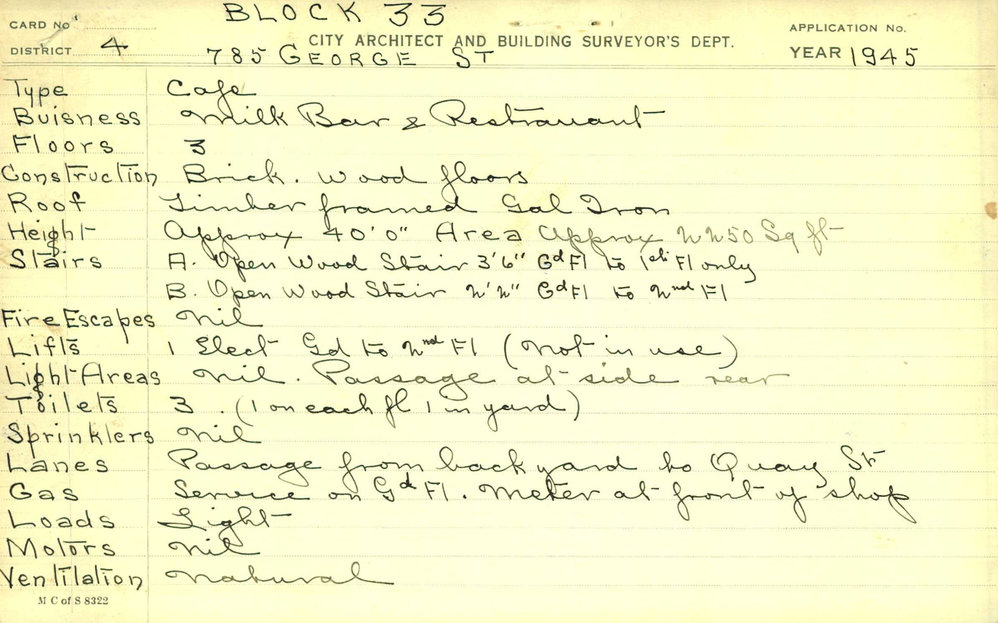 BLOCK 33
CARD No
DISTRICT 4
CITY ARCHITECT AND BUILDING SURVEYOR'S DEPT.
785 GEORGE ST
APPLICATION No.
YEAR 1945
Type Cafe
Buisness Milk Bar & Restrauant
Floors 3
Construction Brick. Wood floors
Roof Timber framed Gal Iron
Height Approx 40'0" Area Approx 2250 Sq ft
Stairs A. Open Wood Stair 3'6" Gd Fl to 1st Fl only
B. Open Wood Stair 2'2" Gd Fl to 2nd Fl
Fire Escapes Nil
Lifts 1 Elect Gd to 2nd Fl (Not in use)
Light Areas Nil. Passage at side rear
Toilets 3. (1 on each fl 1 in yard)
Sprinklers Nil
Lanes Passage from back yard to Quay St
Gas Service on Gd Fl. Meter at front of shop
Loads Light
Motors Nil
Ventilation Natural
M C of S 8322